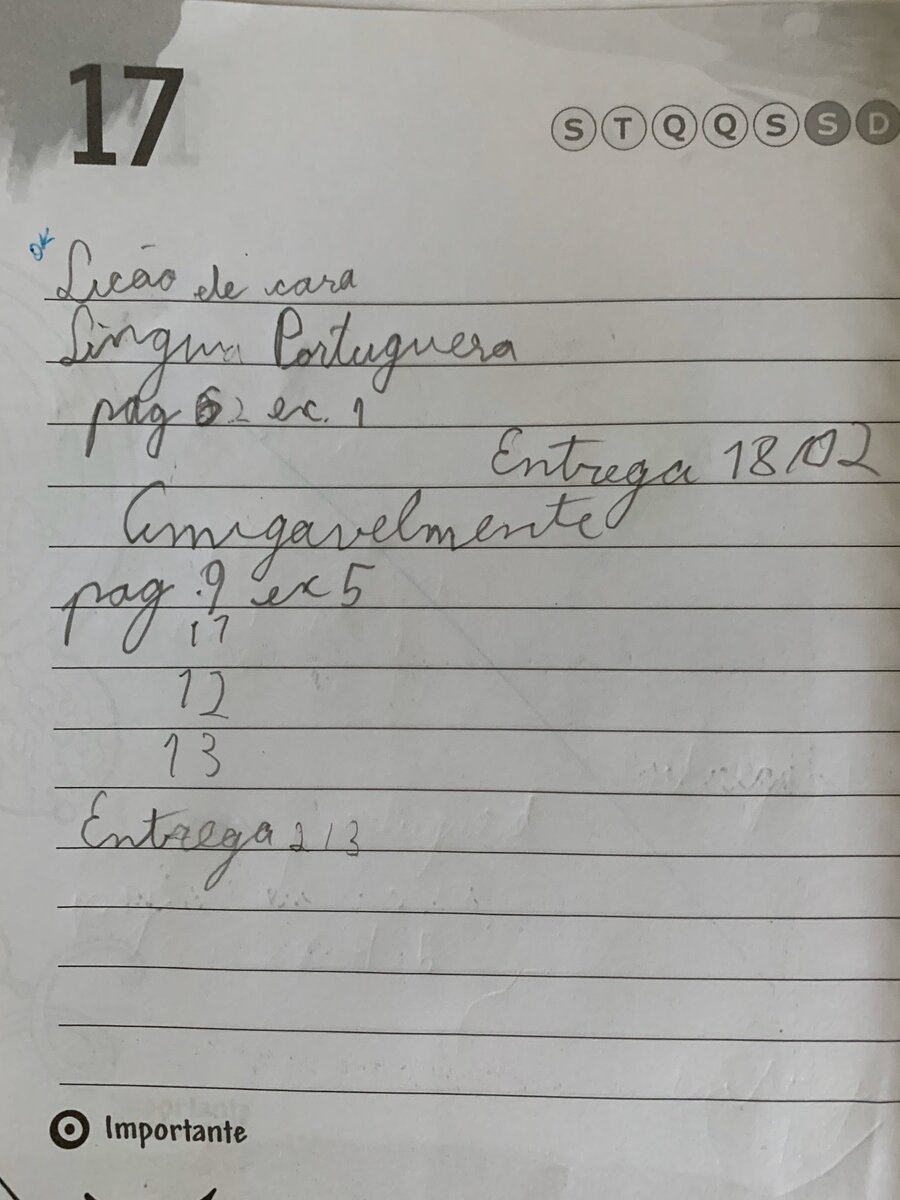 17
S T Q Q S S D
OK
Licão de casa
Língua Portuguesa
pag 62 ex. 1
Entrega 18/02
Amigavelmente
pag. 9 ex 5
17
12
13
Entrega 2/3
Importante